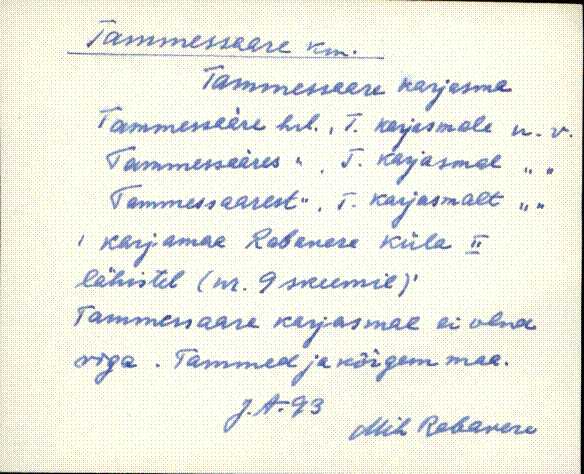 Tammessaare km.
Tammessaare karjasma
Tammessaäre hrl., T. karjasmale n. v.
Tammessaares " , T. karjasmal " "
Tammessaarest " , T. karjasmalt " "
' karjamaa Rabavere küla II
lähistel (nr. 9 skeemil)'
Tammessaare karjasmal ei olnd
viga. Tammed ja kõrgem maa.
J. A. 93
MiH Rabavere